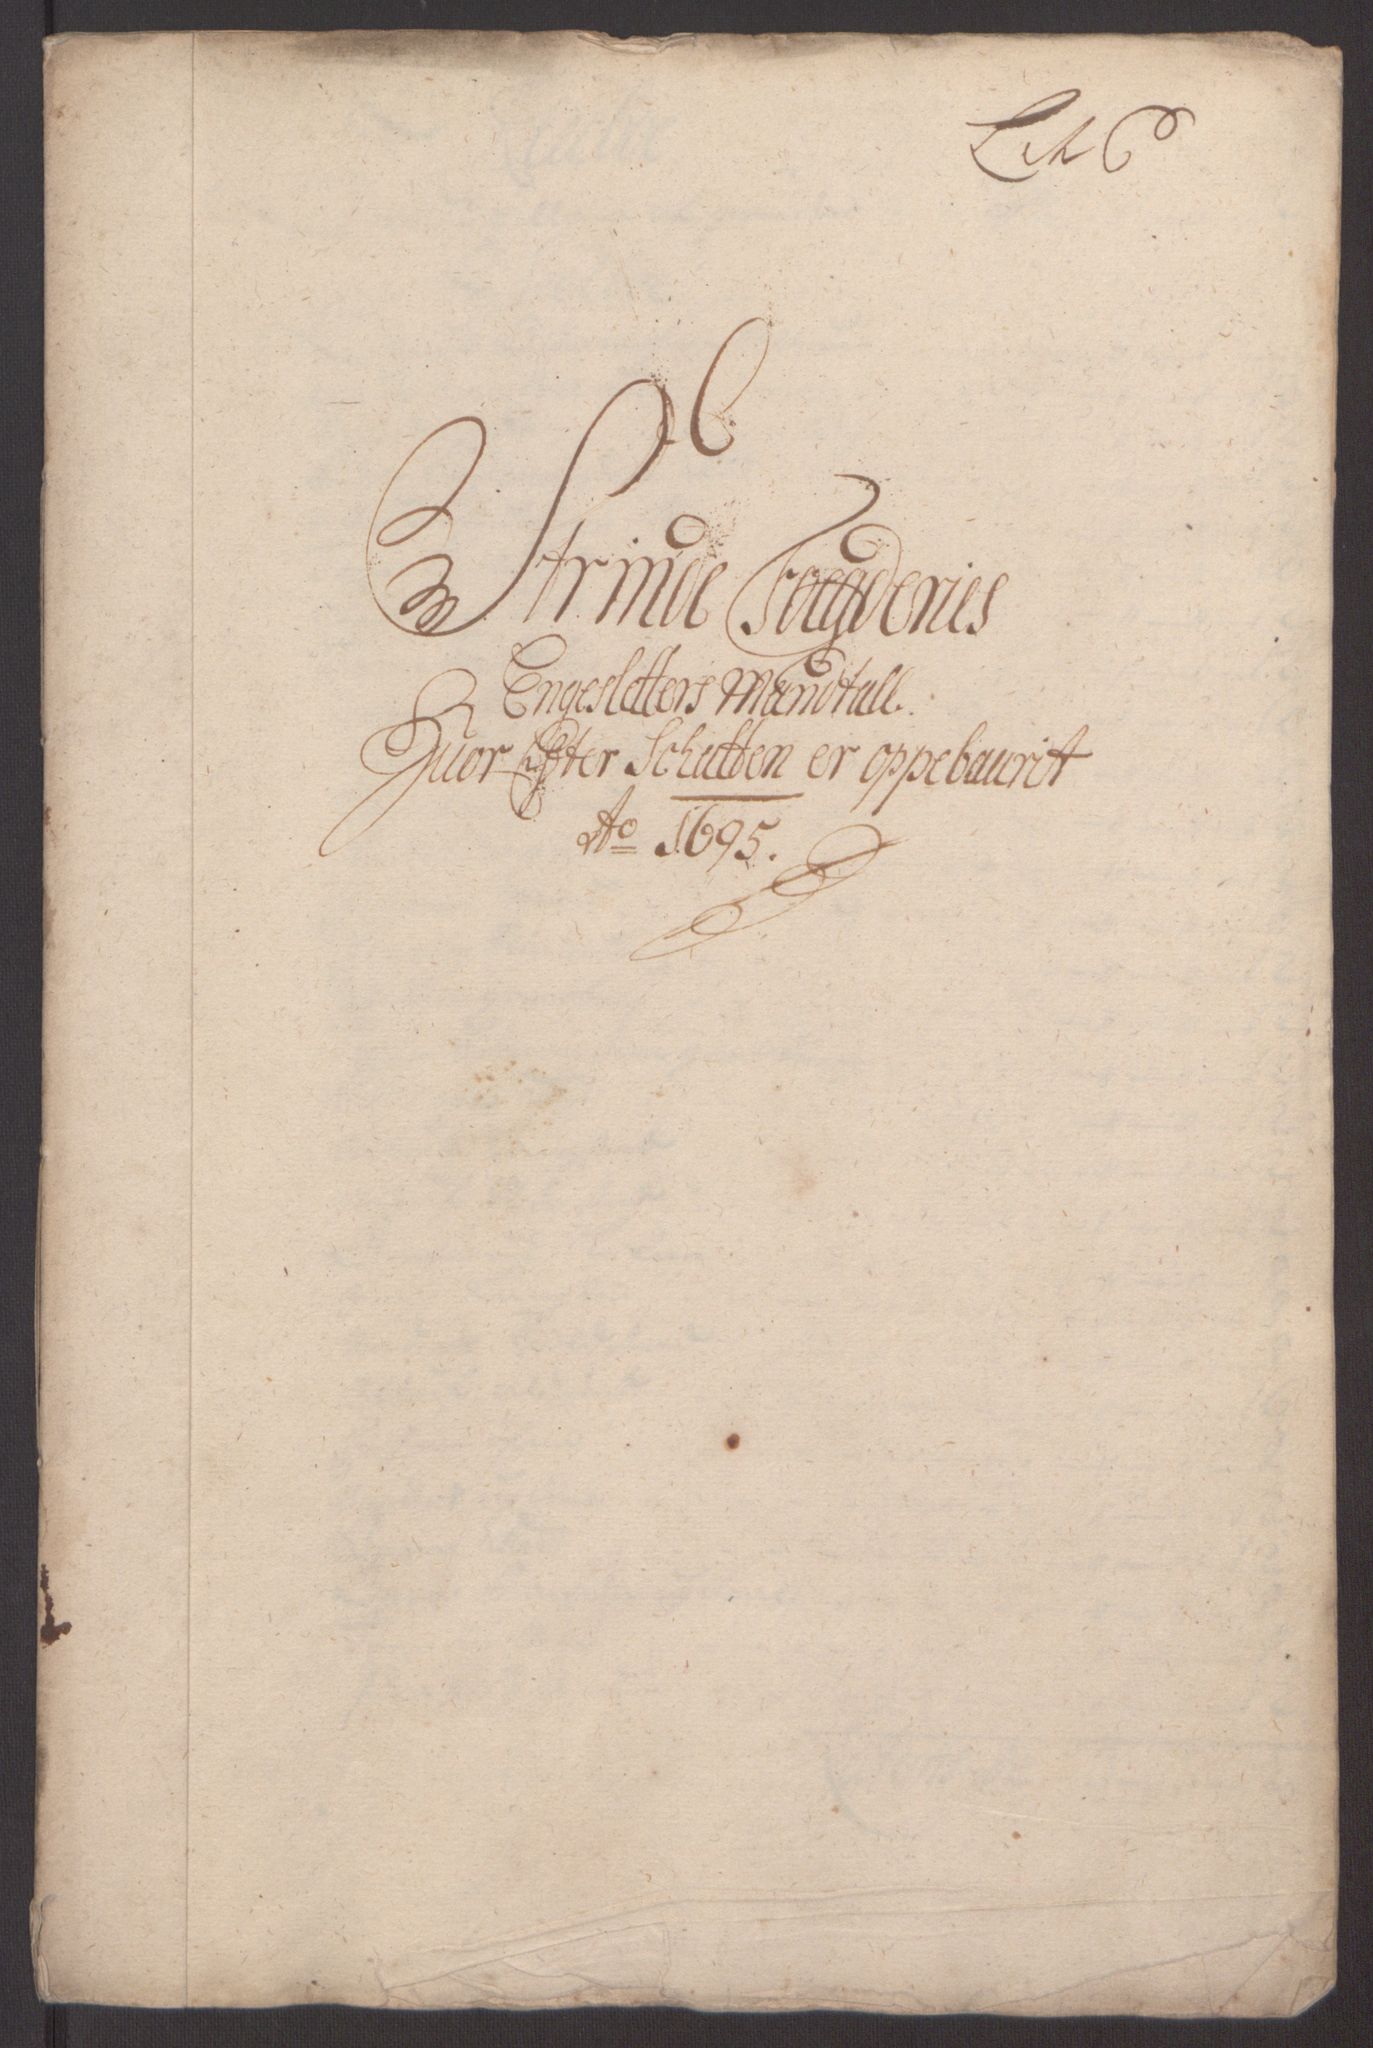 Lit C
Strinde Fogderies
Engesletters Mandtall.
Huor Efter Schatten er oppebaurit
Ao 1695.